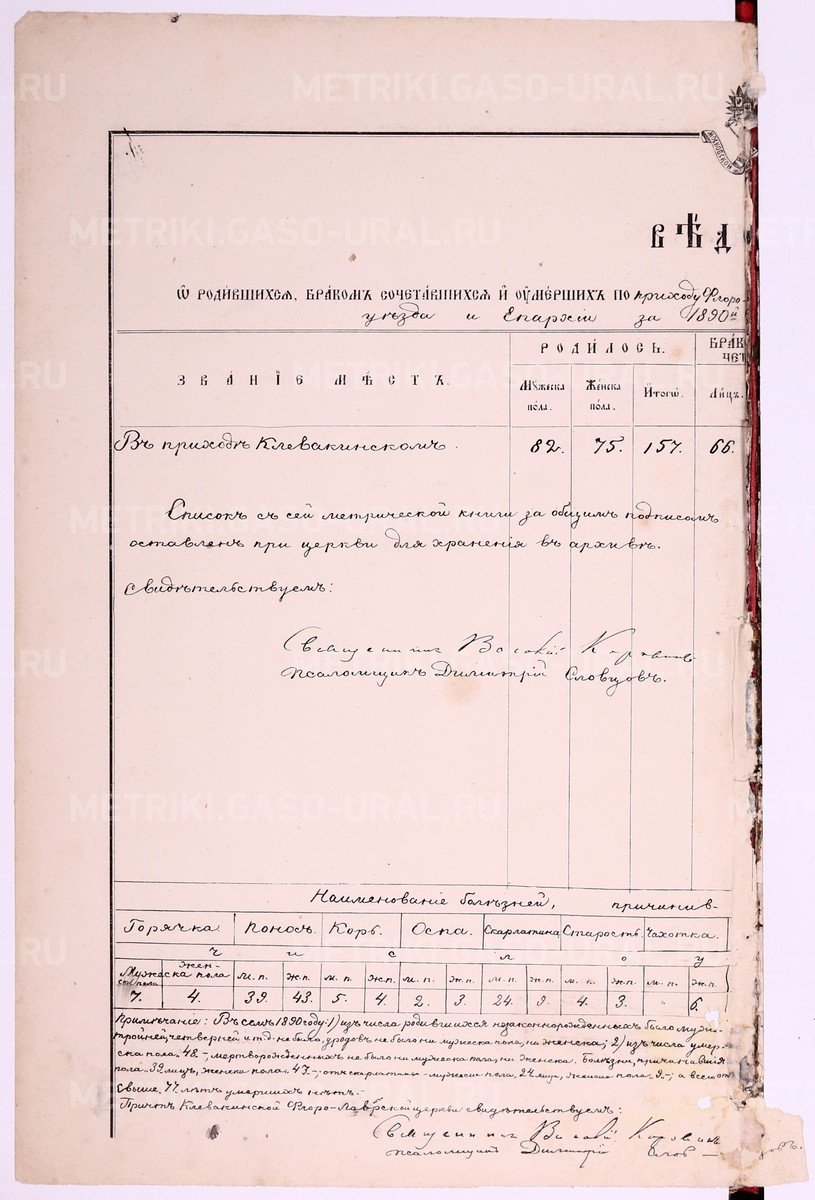 ВѢД
Ѿ РОДИВШИХСЯ, БРАКОМЪ СОЧЕТАВШИХСЯ И ОУМЕРШИХЪ ПО приходу Флоро-
уѣзда и Епархіи за 1890й
ЗВАНІЕ МѢСТЪ.
РОДИЛОСЬ.
БРАК
ЧЕТ
Мꙋжеска пола.
Женска пола.
Итогѡ.
Лицъ.
Въ приходѣ Клевакинскомъ. 82. 75. 157. 66.
Списокъ съ сей метрической книги за общимъ подписомъ
оставленъ при церкви для храненія въ архивѣ.
Свидѣтельствуемъ:
Священникъ Василій Коровинъ
Псаломщикъ Димитрій Словцовъ.
Наименованіе болѣзней, причинив-
Горячка. Поносъ. Корь. Оспа. Скарлатина. Старость. Чахотка.
Числом у
Мужеска пола Женска пола м.п. ж.п. м.п. ж.п. м.п. ж.п. м.п. ж.п. м.п. ж.п. м.п. ж.п.
7. 4. 39. 43. 5. 4. 2. 3. 24. 9. 4. 3. " 6.
Примѣчаніе: Въ семъ 1890 году 1) изъ числа родившихся незаконнорожденныхъ было муж-
тройней, четверней и т.д. не было, уродовъ не было ни мужеска пола, ни женска; 2) изъ числа умер-
ска пола 48-, мертворожденныхъ не было ни мужеска пола, ни женска. Болѣзни, причинившія
пола 39 лицъ, женска пола 47-; отъ скарлатины - мужеска пола 24 лица, женска пола 9-; а всего от
свыше 77 лѣтъ умершихъ нѣтъ.
Причтъ Клевакинской Флоро-Лаврской церкви свидѣтельствуемъ:
Священникъ Василій Коровинъ
Псаломщикъ Димитрій Слов
METRIKI.GASO-URAL.RU